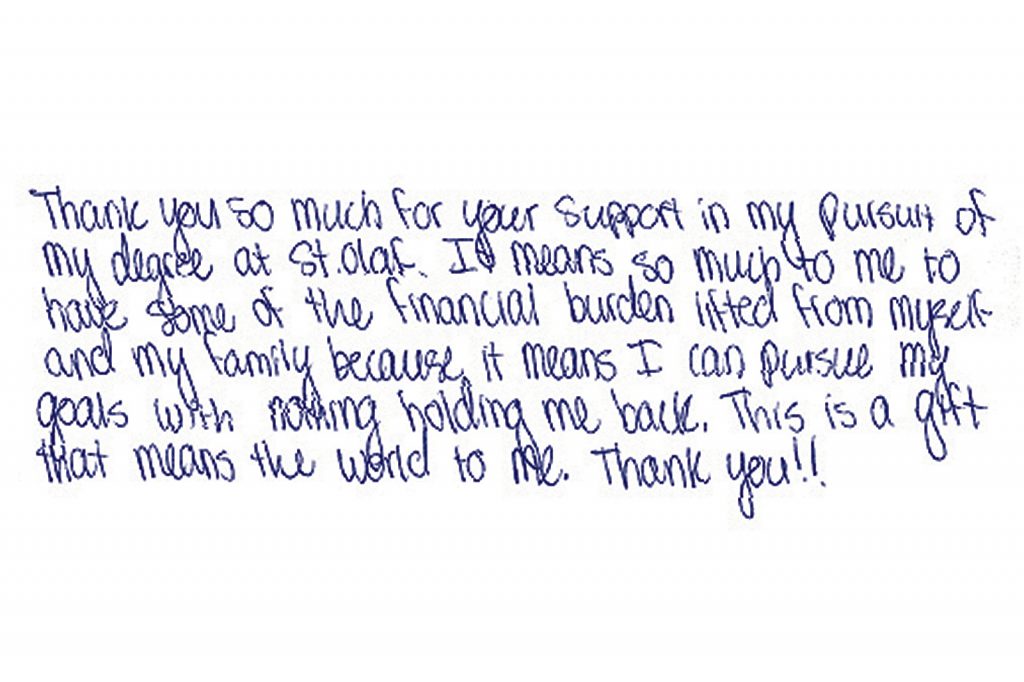 Thank you so much for your support in my pursuit of
my degree at St. Olaf. It means so much to me to
have some of the financial burden lifted from myself
and my family because it means I can pursue my
goals with nothing holding me back. This is a gift
that means the world to me. Thank you!!